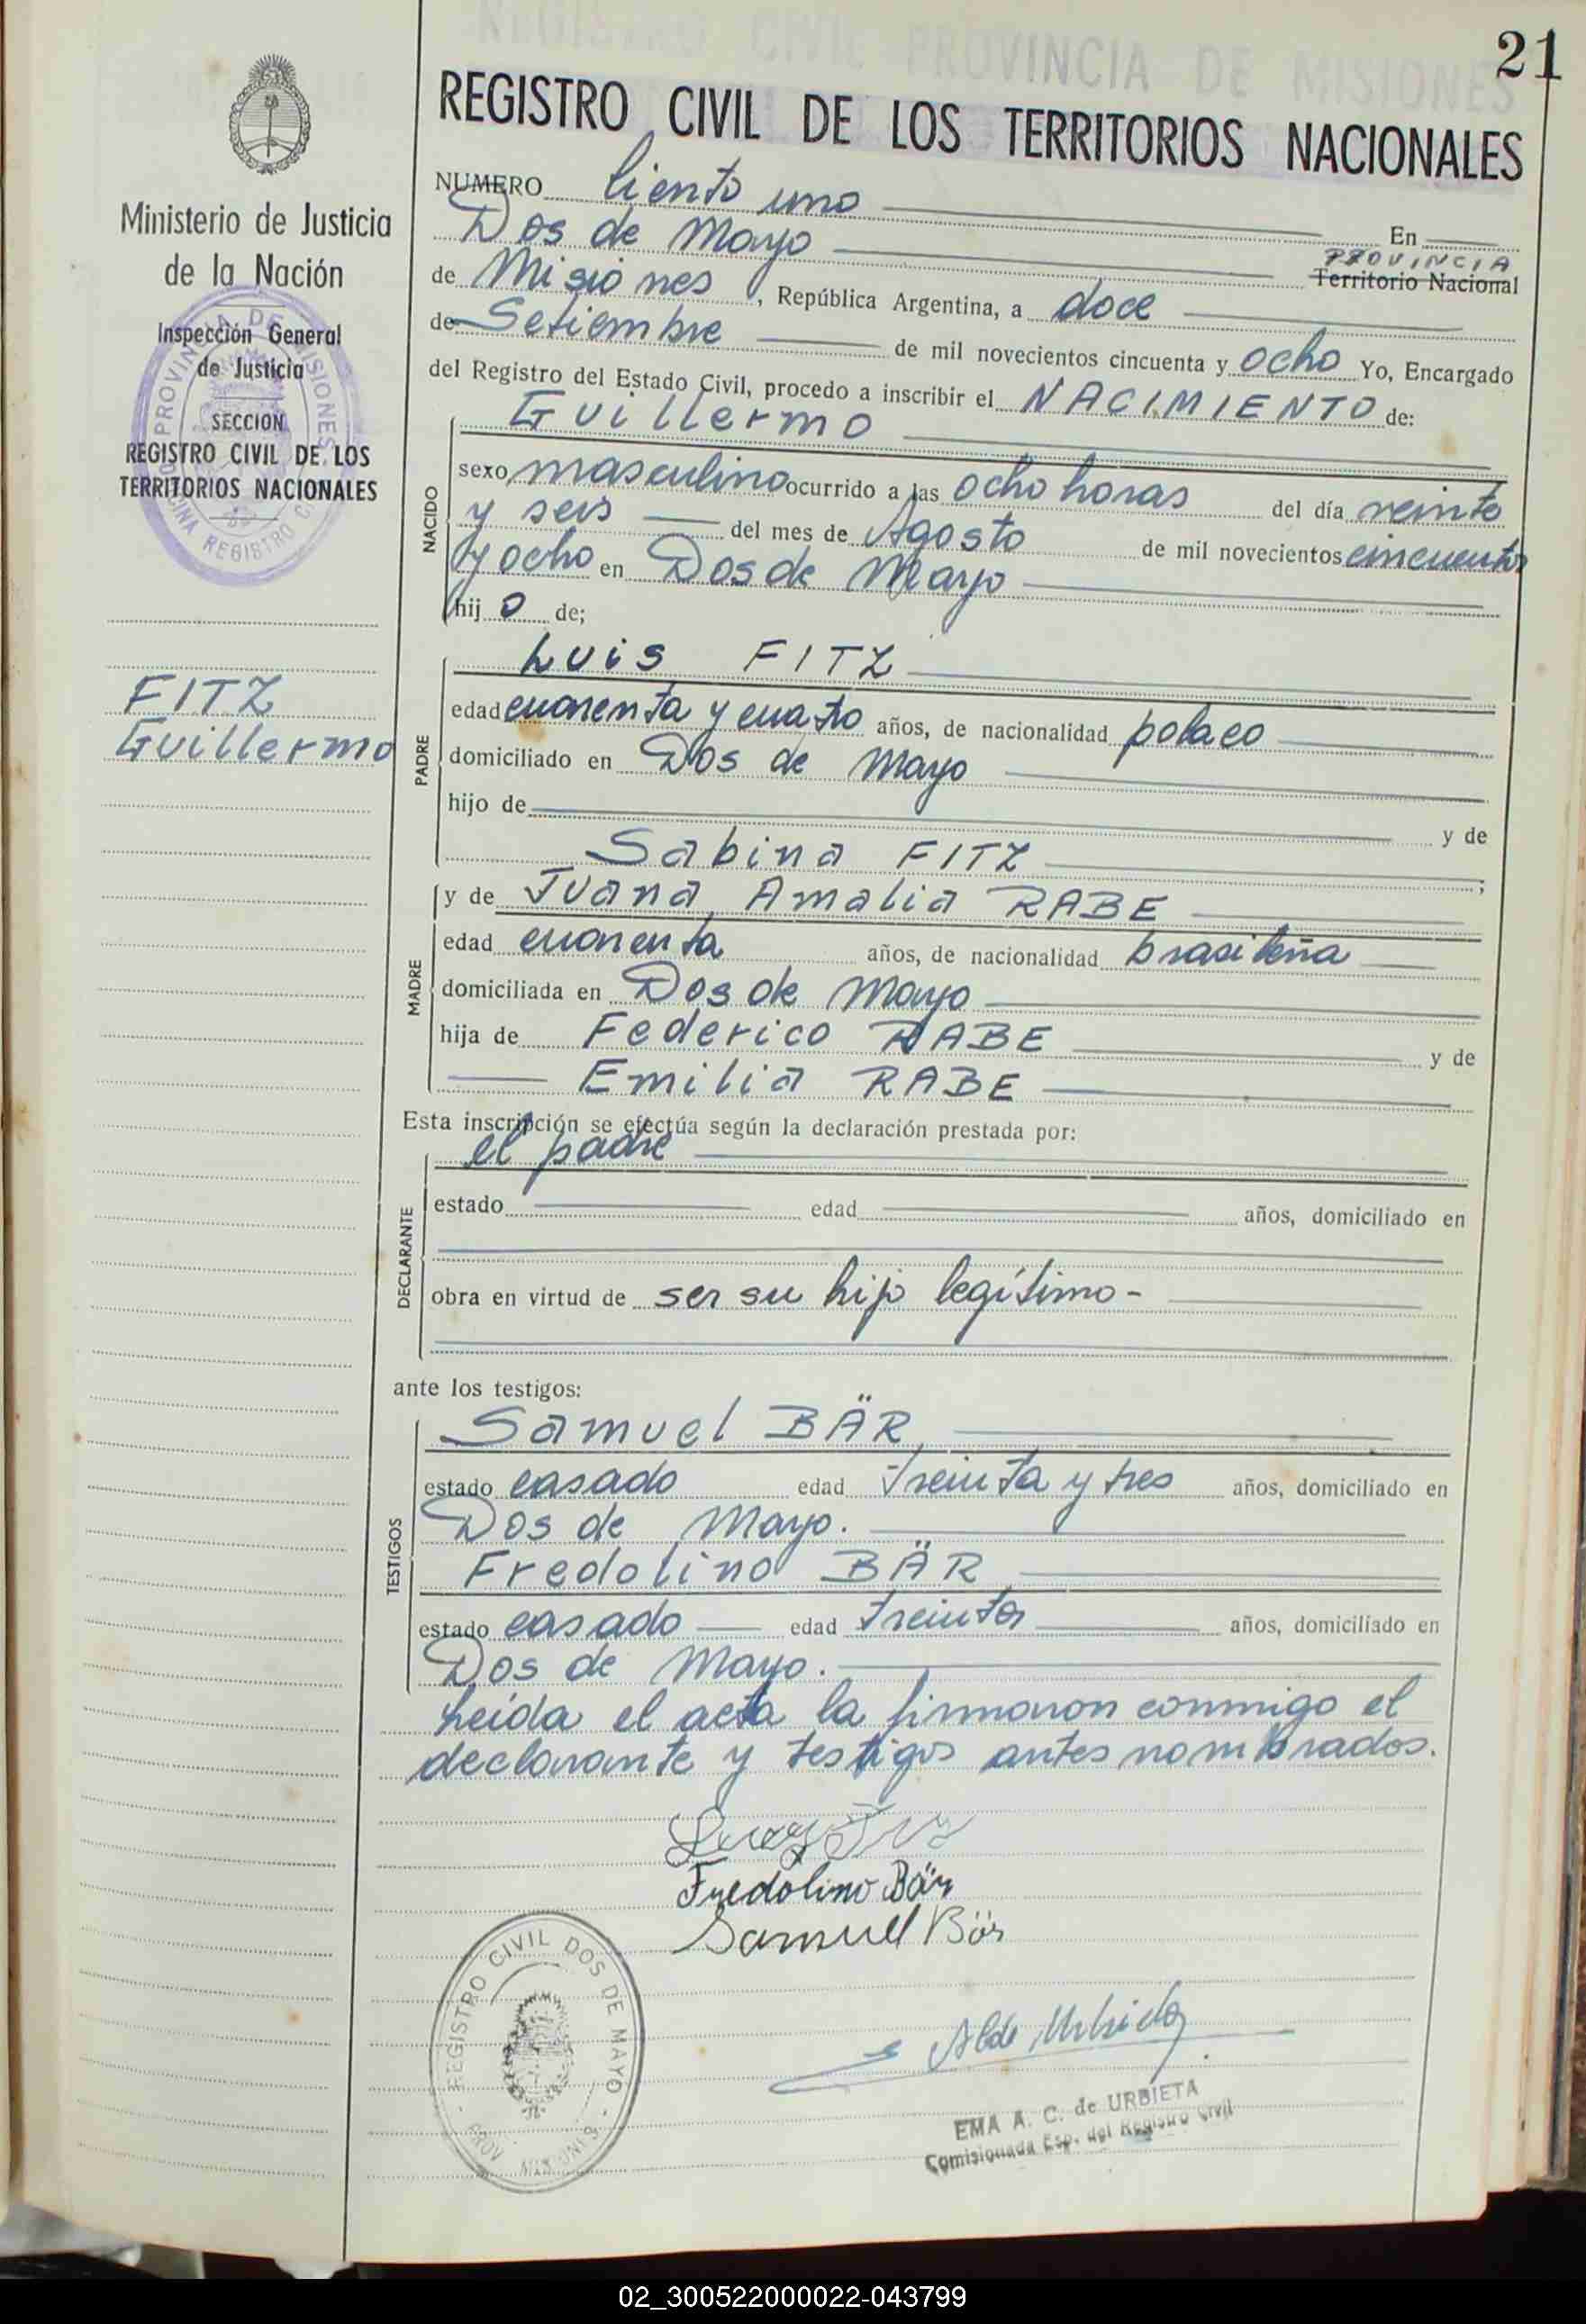 21
REGISTRO CIVIL PROVINCIA DE MISIONES
REGISTRO CIVIL DE LOS TERRITORIOS NACIONALES
Ministerio de Justicia
de la Nación
Inspección General
de Justicia
SECCION
REGISTRO CIVIL DE LOS
TERRITORIOS NACIONALES
PROVINCIA DE MISIONES
OFICINA REGISTRO
FITZ
Guillermo
NUMERO Ciento uno
En
Dos de Mayo PROVINCIA
Territorio Nacional
de Misiones, República Argentina, a doce
de Setiembre de mil novecientos cincuenta y ocho Yo, Encargado
del Registro del Estado Civil, procedo a inscribir el NACIMIENTO de:
NACIDO
Guillermo
sexo masculino ocurrido a las ocho horas del día veinte
y seis del mes de Agosto de mil novecientos cincuenta
y ocho en Dos de Mayo
hij o de;
PADRE
Luis FITZ
edad cuarenta y cuatro años, de nacionalidad polaco
domiciliado en Dos de Mayo
hijo de y de
Sabina FITZ ;
MADRE
y de Juana Amalia RABE
edad cuarenta años, de nacionalidad brasileña
domiciliada en Dos de Mayo
hija de Federico RABE y de
Emilia RABE
Esta inscripción se efectúa según la declaración prestada por:
DECLARANTE
el padre
estado edad años, domiciliado en
obra en virtud de ser su hijo legítimo-
ante los testigos:
TESTIGOS
Samuel BÄR
estado casado edad treinta y tres años, domiciliado en
Dos de Mayo.
Fredolino BÄR
estado casado edad treinta años, domiciliado en
Dos de Mayo.
Leída el acta la firmaron conmigo el
declarante y testigos antes nombrados.
Fredolino Bär
Samuel Bär
REGISTRO CIVIL DOS DE MAYO
PROV. MISIONES
EMA A. C. de URBIETA
Comisionada Esp. del Registro Civil
02_300522000022-043799